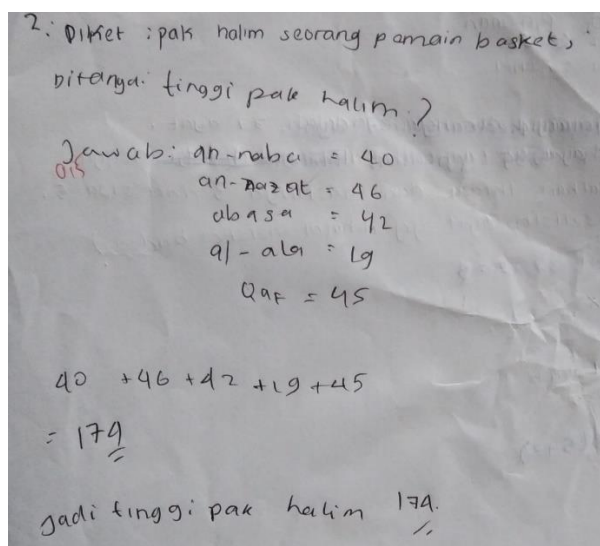 2. Diket : pak halim seorang pamain basket,
Ditanya. tinggi pak halim?
Jawab: an-naba = 40
an-nazat = 46
abasa = 42
al-ala = 19
Qaf = 45
40 +46 +42 +19 +45
= 174
Jadi tinggi pak halim 174.